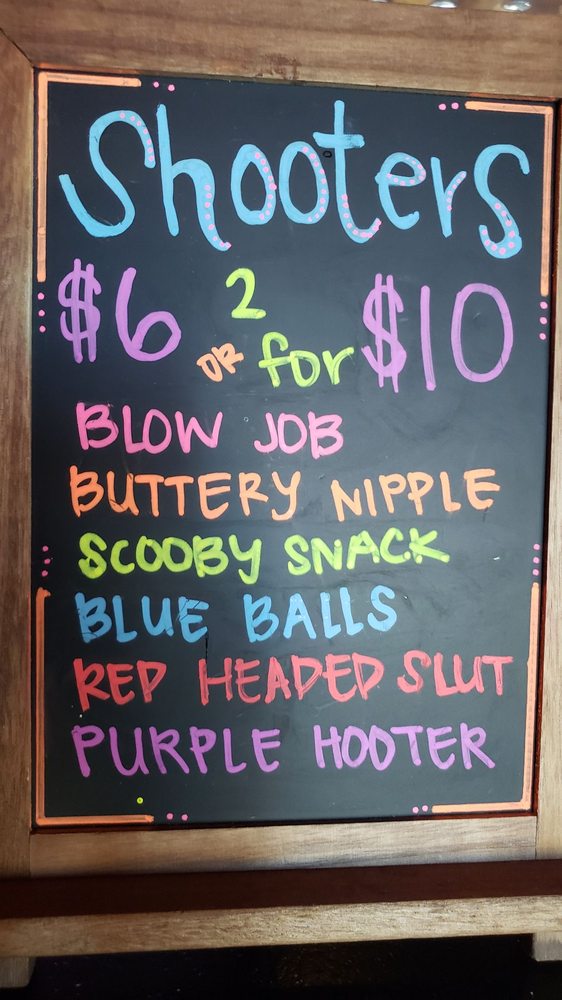 Shooters
$6 OR 2 for $10
BLOW JOB
BUTTERY NIPPLE
SCOOBY SNACK
BLUE BALLS
RED HEADED SLUT
PURPLE HOOTER